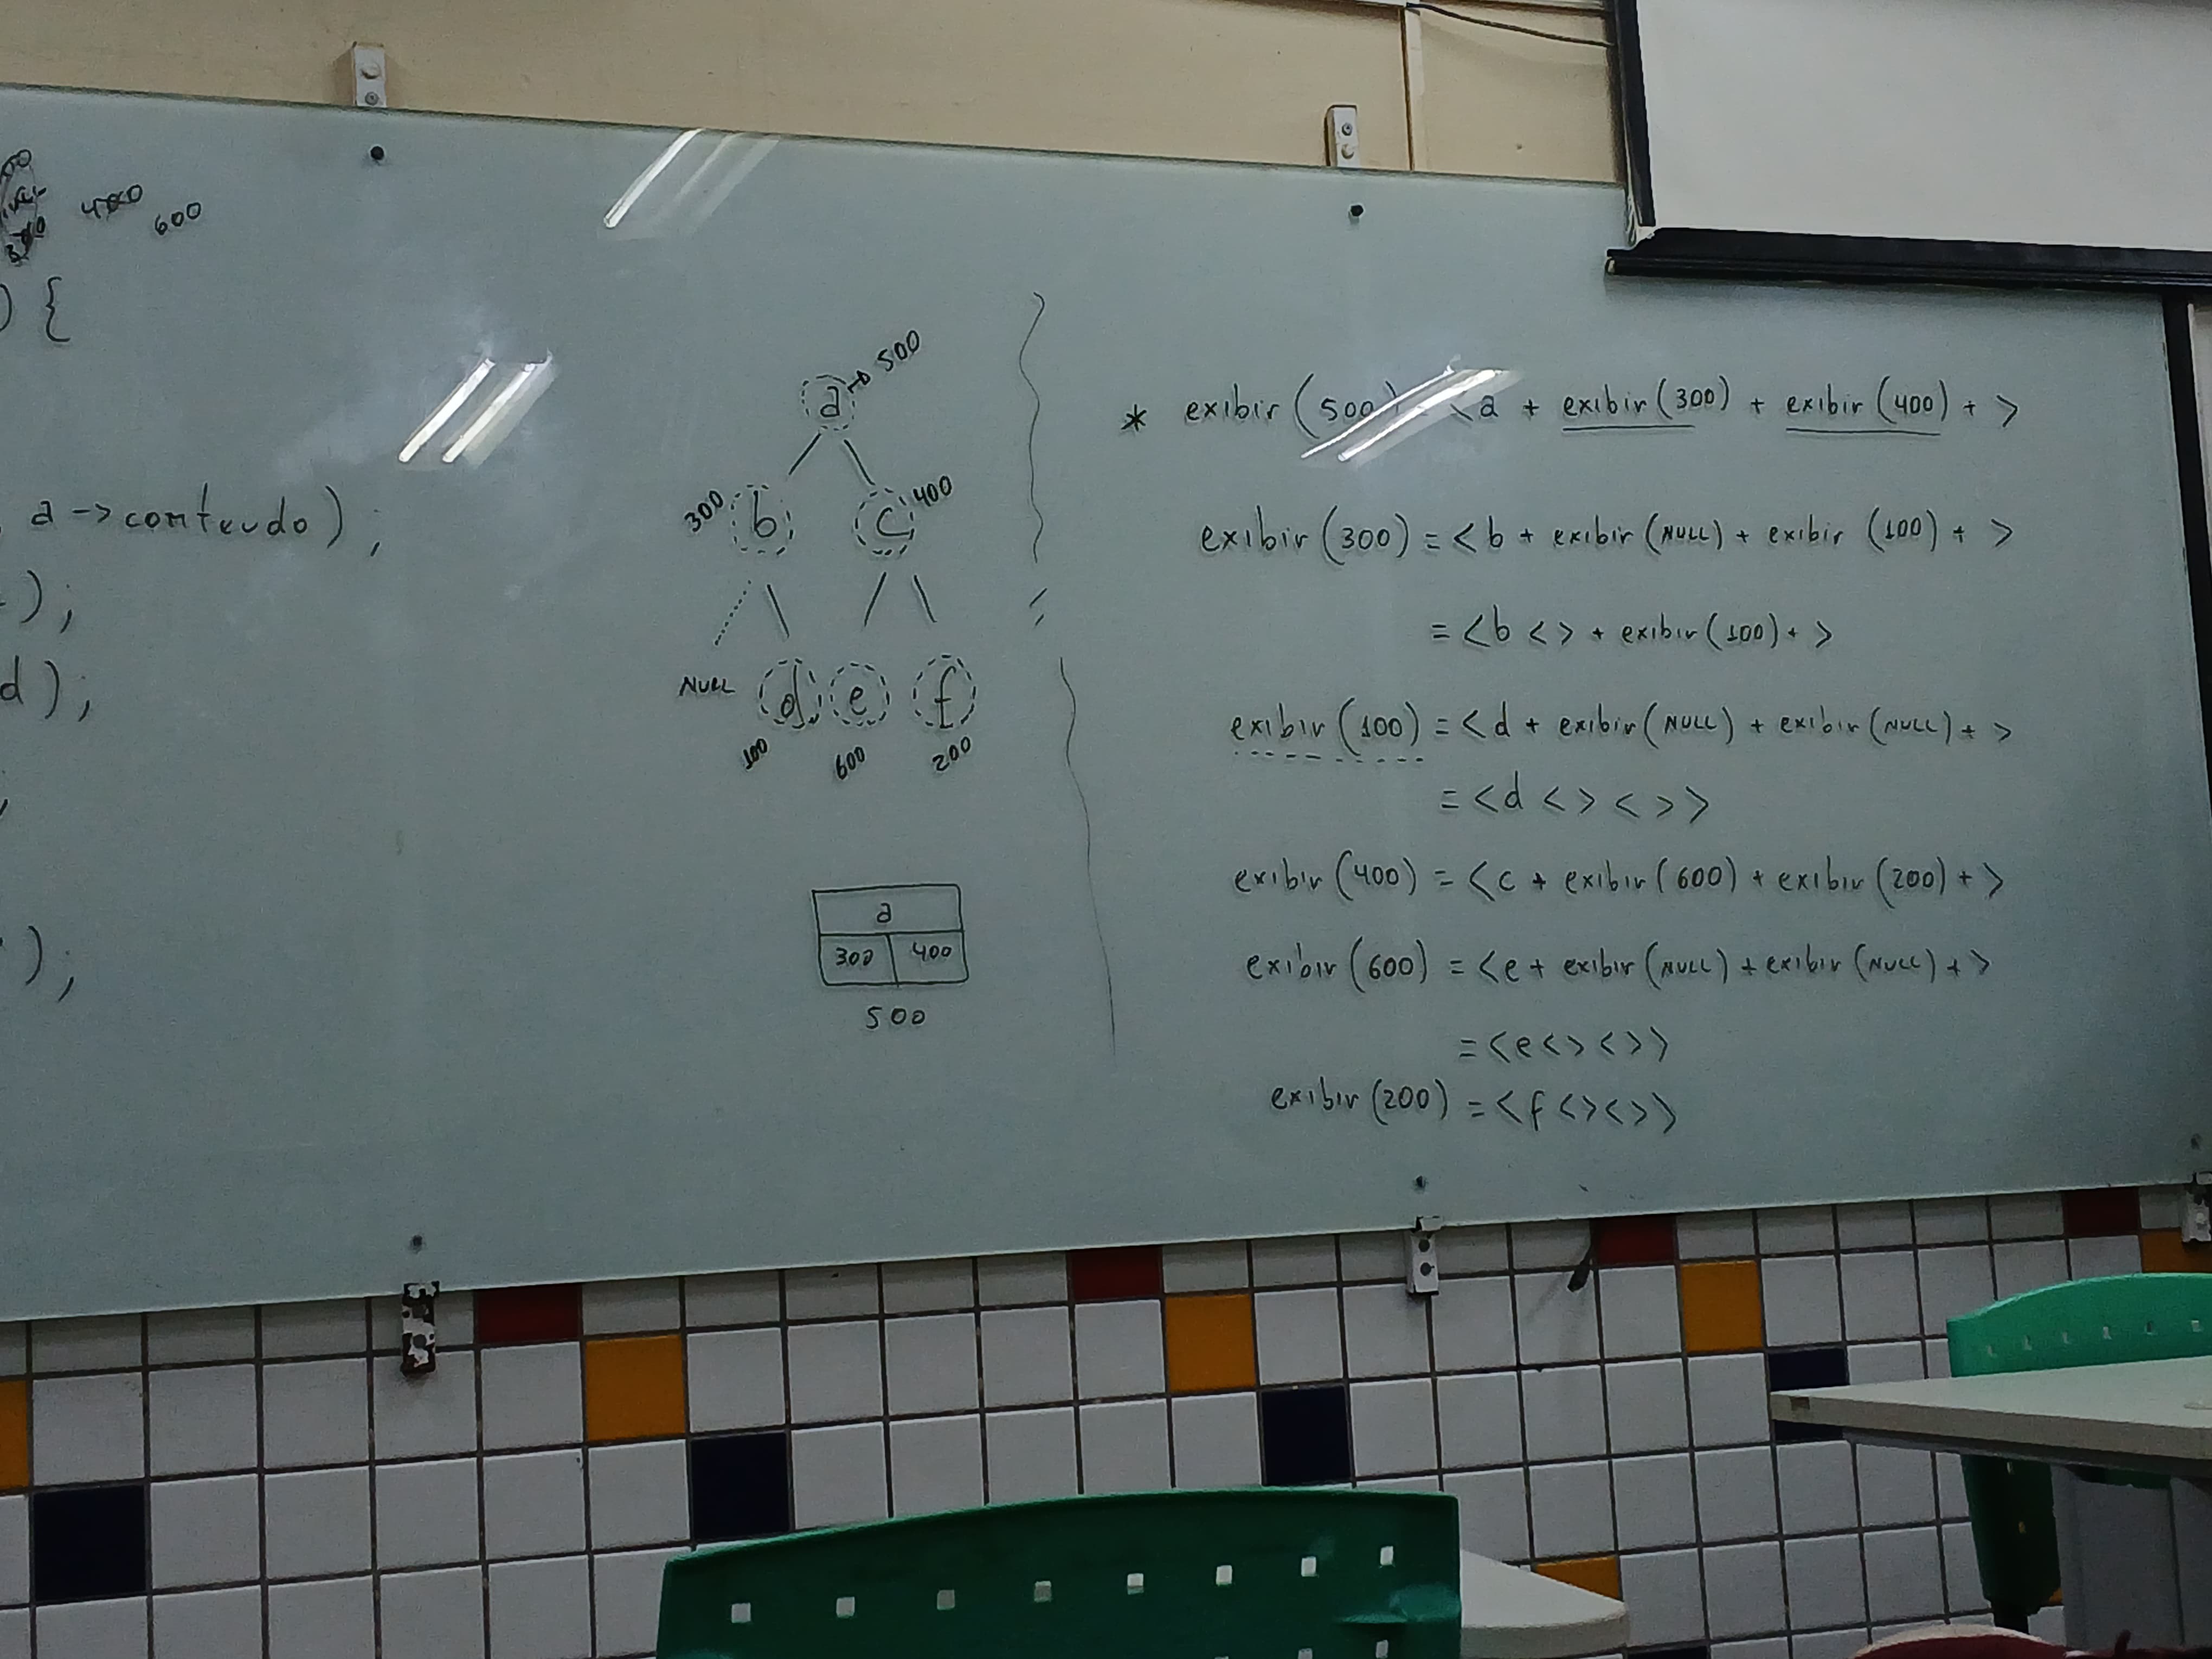 400
600
) {
a->conteudo);
);
d);
);
a → 500
300 b
c 400
NULL d e f
100 600 200
a
300 400
500
* exibir (500) = <a + exibir (300) + exibir (400) + >
exibir (300) = <b + exibir (NULL) + exibir (100) + >
= <b <> + exibir (100) + >
exibir (100) = <d + exibir (NULL) + exibir (NULL) + >
= <d <> <>>
exibir (400) = <c + exibir (600) + exibir (200) + >
exibir (600) = <e + exibir (NULL) + exibir (NULL) + >
= <e <> <>>
exibir (200) = <f <> <>>